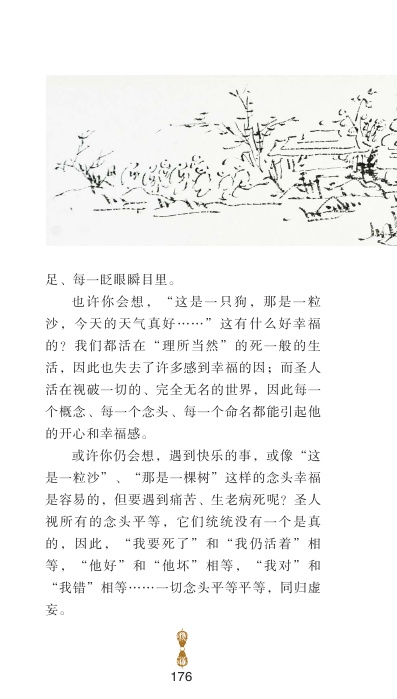 足、每一眨眼瞬目里。
也许你会想，“这是一只狗，那是一粒
沙，今天的天气真好……”这有什么好幸福
的？我们都活在“理所当然”的死一般的生
活，因此也失去了许多感到幸福的因；而圣人
活在视破一切的、完全无名的世界，因此每一
个概念、每一个念头、每一个命名都能引起他
的开心和幸福感。
或许你仍会想，遇到快乐的事，或像“这
是一粒沙”、“那是一棵树”这样的念头幸福
是容易的，但要遇到痛苦、生老病死呢？圣人
视所有的念头平等，它们统统没有一个是真
的，因此，“我要死了”和“我仍活着”相
等，“他好”和“他坏”相等，“我对”和
“我错”相等……一切念头平等平等，同归虚
妄。
176